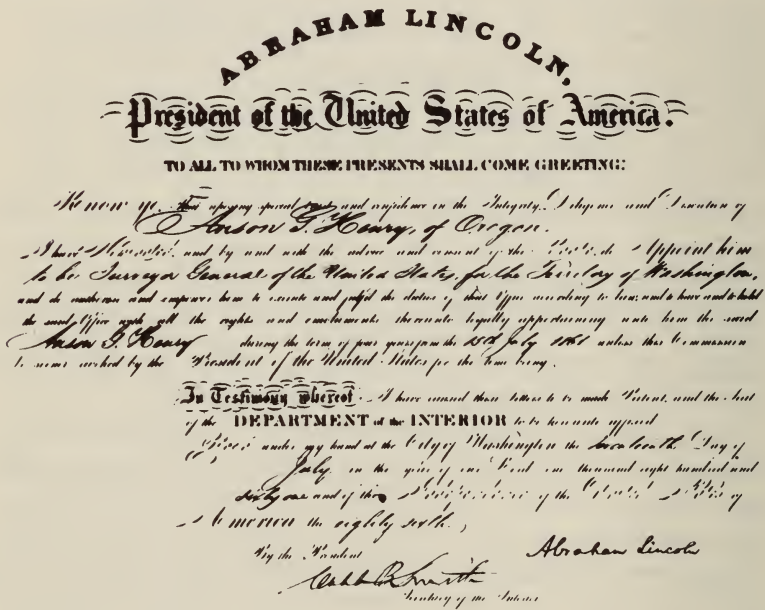 ABRAHAM LINCOLN,
President of the United States of America.
TO ALL TO WHOM THESE PRESENTS SHALL COME GREETING:
Know ye, that reposing special trust and confidence in the Integrity, Diligence and Discretion of
Anson G. Henry, of Oregon.
I have Nominated, and by and with the advice and consent of the Senate do Appoint him
to be Surveyor General of the United States, for the Territory of Washington,
and do authorize and empower him to execute and fulfil the duties of that Office according to law; and to have and to hold
the said Office with all the rights and emoluments thereunto legally appertaining unto him the said
Anson G. Henry during the term of four years from the July 1861 unless this Commission
be sooner revoked by the President of the United States for the time being.
In Testimony whereof I have caused these letters to be made Patent, and the Seal
of the DEPARTMENT of the INTERIOR to be hereunto affixed
Given under my hand at the City of Washington the Day of
July in the year of our Lord one thousand eight hundred and
sixty one and of the Independence of the United States of
America the eighty sixth.
By the President
Abraham Lincoln
Caleb B. Smith
Secretary of the Interior